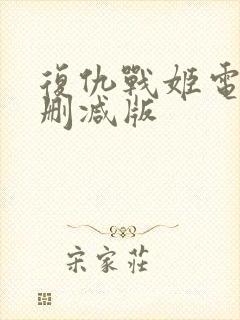 復仇戰姬電
刪減版
宋家莊